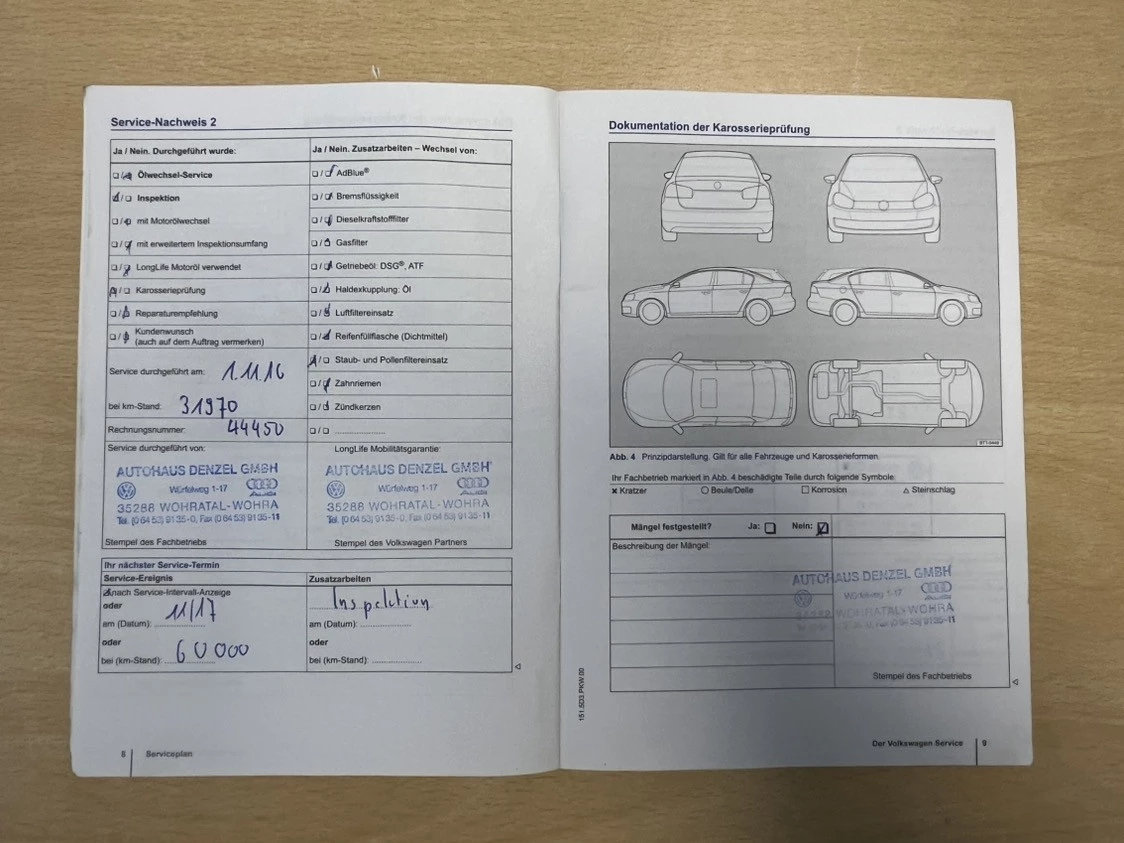 Service-Nachweis 2
Ja / Nein. Durchgeführt wurde:
☐/☑ Ölwechsel-Service
☑/☐ Inspektion
☐/☑ mit Motorölwechsel
☐/☑ mit erweitertem Inspektionsumfang
☐/☑ LongLife Motoröl verwendet
☑/☐ Karosserieprüfung
☐/☑ Reparaturempfehlung
☐/☑ Kundenwunsch
(auch auf dem Auftrag vermerken)
Service durchgeführt am: 1.11.16
bei km-Stand: 31970
Rechnungsnummer: 44450
Ja / Nein. Zusatzarbeiten – Wechsel von:
☐/☑ AdBlue®
☐/☑ Bremsflüssigkeit
☐/☑ Dieselkraftstofffilter
☐/☑ Gasfilter
☐/☑ Getriebeöl: DSG®, ATF
☐/☑ Haldexkupplung: Öl
☐/☑ Luftfiltereinsatz
☐/☑ Reifenfüllflasche (Dichtmittel)
☑/☐ Staub- und Pollenfiltereinsatz
☐/☑ Zahnriemen
☐/☑ Zündkerzen
☐/☐ ....................
Service durchgeführt von:
AUTOHAUS DENZEL GMBH
Würfelweg 1-17
35288 WOHRATAL-WOHRA
Tel. (0 64 53) 91 35-0, Fax (0 64 53) 91 35-11
Stempel des Fachbetriebs
LongLife Mobilitätsgarantie:
AUTOHAUS DENZEL GMBH
Würfelweg 1-17
35288 WOHRATAL-WOHRA
Tel. (0 64 53) 91 35-0, Fax (0 64 53) 91 35-11
Stempel des Volkswagen Partners
Ihr nächster Service-Termin
Service-Ereignis
☑ nach Service-Intervall-Anzeige
oder
am (Datum): 11/17
oder
bei (km-Stand): 60 000
Zusatzarbeiten
Inspektion
am (Datum): ....................
oder
bei (km-Stand): ....................
8 Serviceplan
Dokumentation der Karosserieprüfung
Abb. 4 Prinzipdarstellung. Gilt für alle Fahrzeuge und Karosserieformen.
Ihr Fachbetrieb markiert in Abb. 4 beschädigte Teile durch folgende Symbole:
× Kratzer ○ Beule/Delle ☐ Korrosion △ Steinschlag
Mängel festgestellt? Ja: ☐ Nein: ☑
Beschreibung der Mängel:
AUTOHAUS DENZEL GMBH
Würfelweg 1-17
35288 WOHRATAL-WOHRA
91 35-11
Stempel des Fachbetriebs
151.5D3.PKW.00
Der Volkswagen Service 9